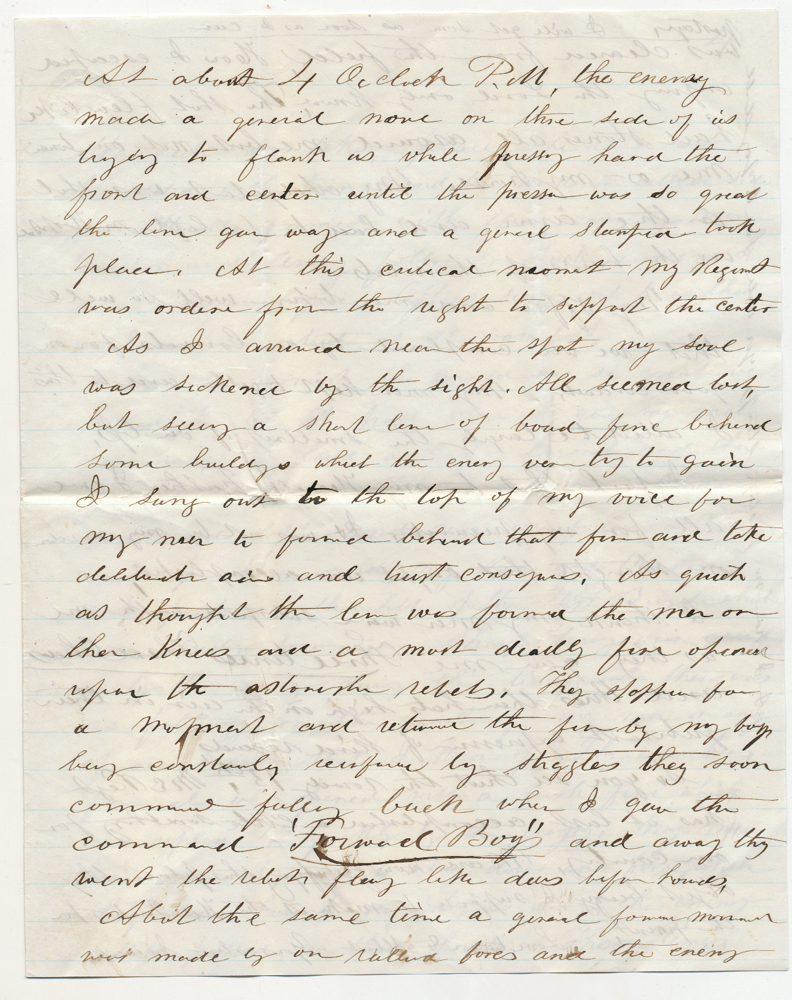 At about 4 Oclock P.M, the enemy
made a general move on three side of us
trying to flank us while pressing hard the
front and center until the pressure was so great
the line gave way and a general stampede took
place. At this critical moment my Regiment
was ordered from the right to support the center
As I arrived near the spot my soul
was sickened by the sight. All seemed lost,
but seeing a short line of board fence behind
some buildings which the enemy were try to gain
I sung out to the top of my voice for
my men to formed behind that fence and take
deliberate aim and trust consequences. As quick
as thought the line was formed the men on
their Knees and a most deadly fire opened
upon the astonished rebels. They stopped for
a moment and returned the fire by my boys
being constantly reinforced by straglers they soon
commenced falling back when I gave the
command "Forward Boys" and away they
went the rebels fleeing like deers before hounds,
About the same time a general forward movement
was made by our rallied forces and the enemy